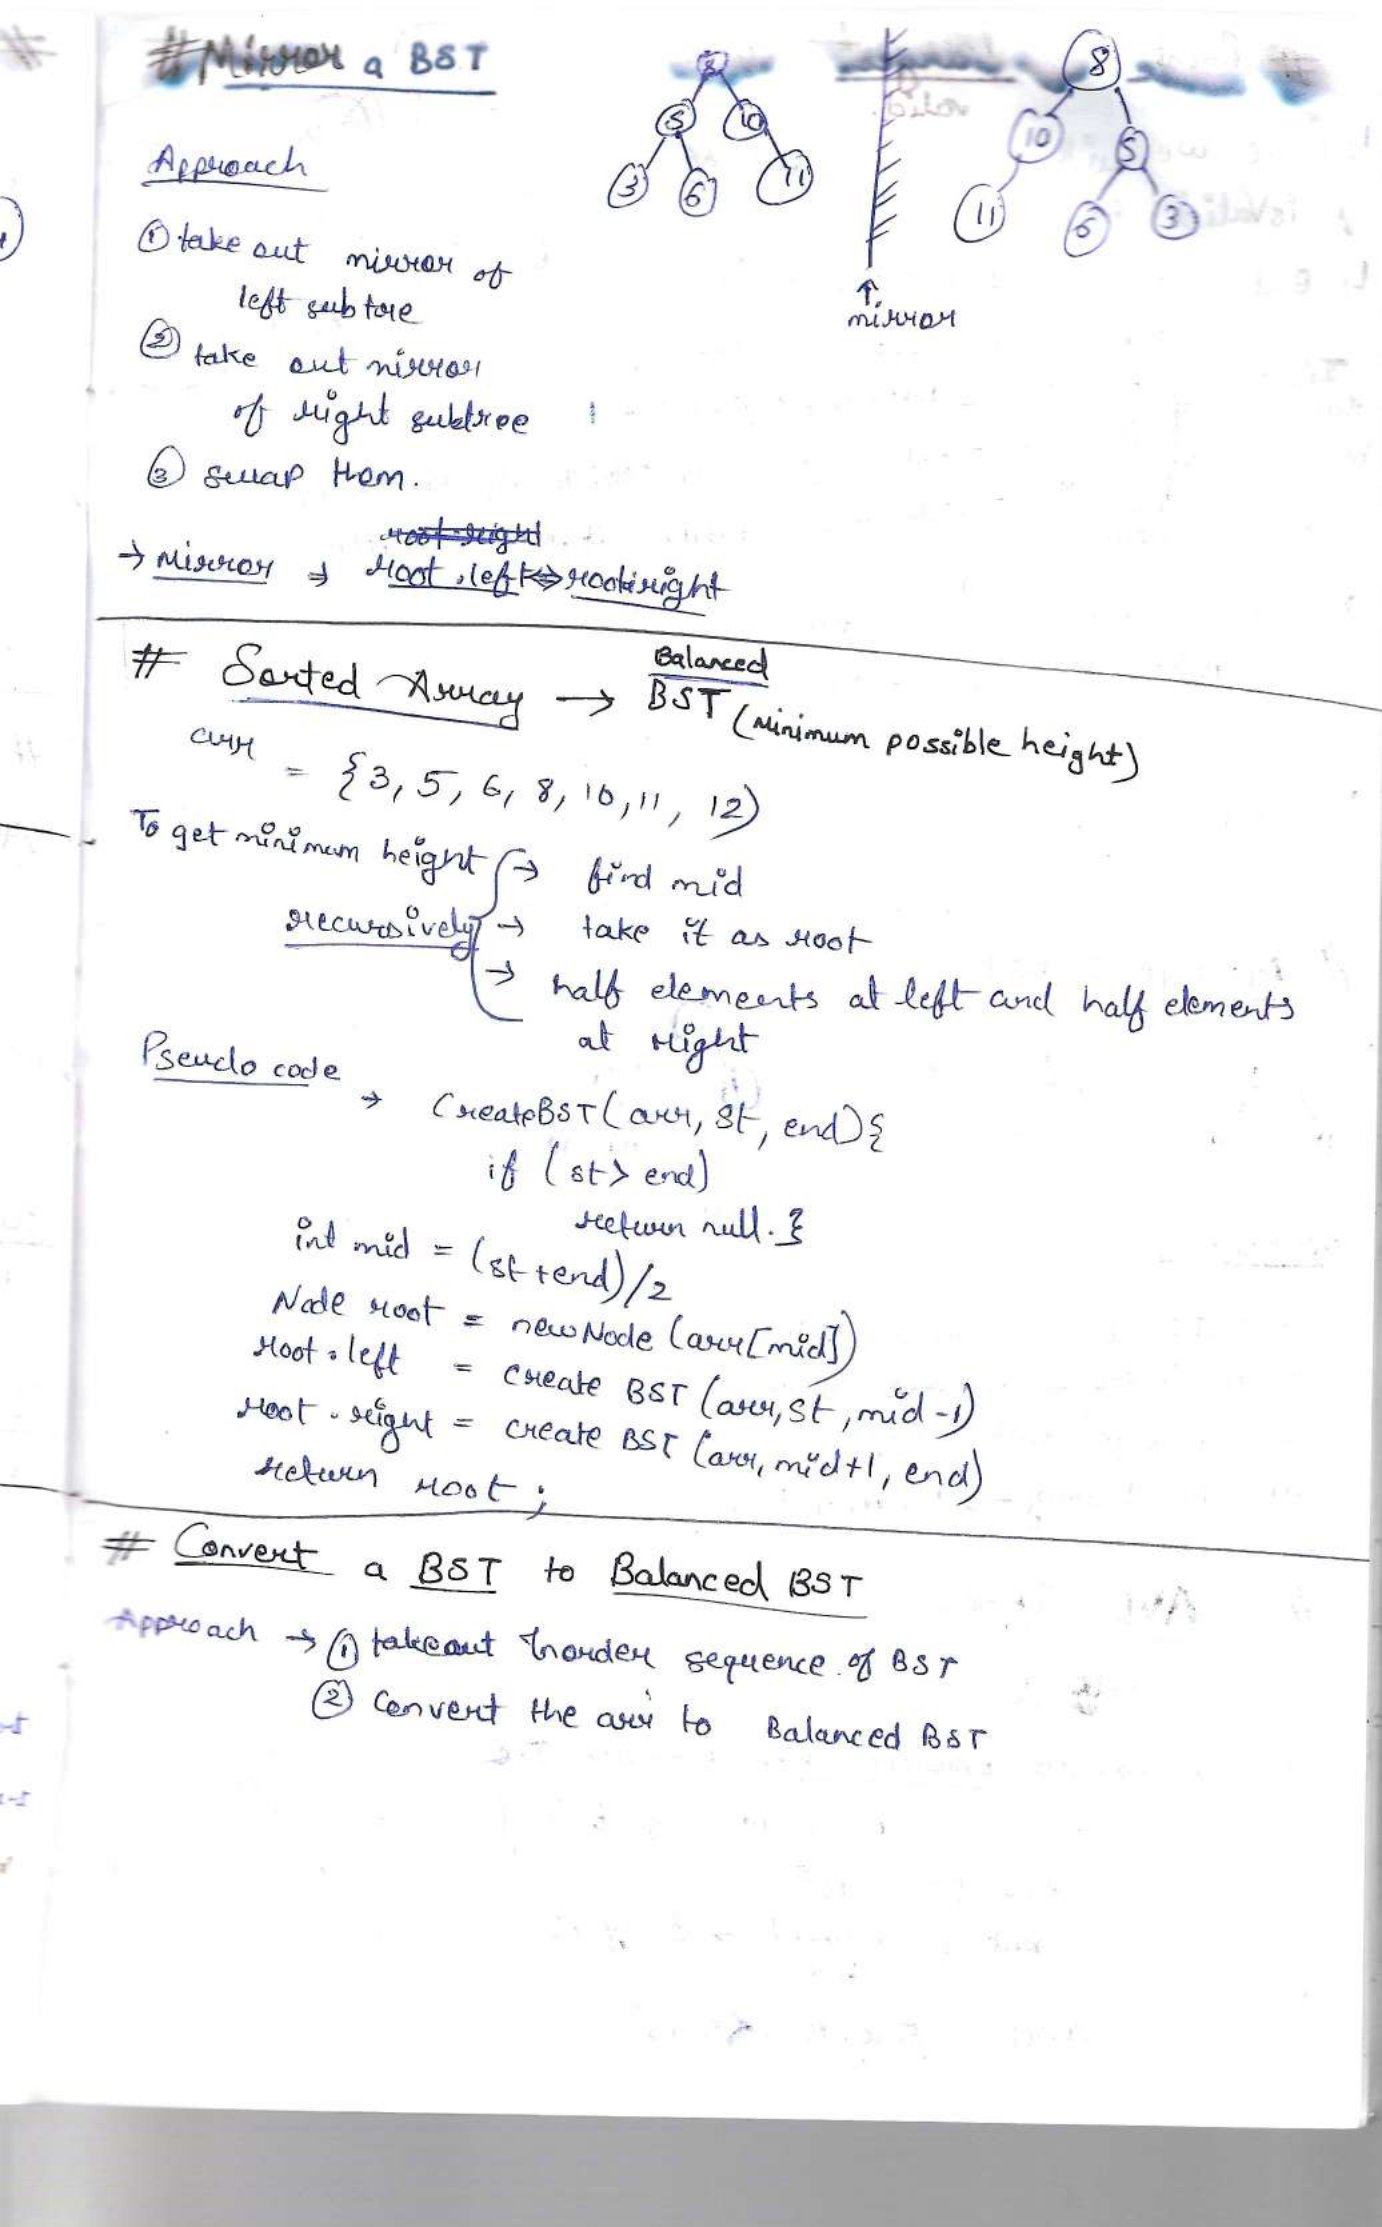 # Mirror a BST
8
5 10
3 6 11
8
10 5
11 6 3
↑
mirror
Approach
① take out mirror of
left subtree
② take out mirror
of right subtree
③ swap them.
root.right
→ Mirror ⇒ root.left ⇔ root.right
# Sorted Array → Balanced
BST (Minimum possible height)
arr = {3, 5, 6, 8, 10, 11, 12)
To get minimum height → find mid
recursively → take it as root
→ half elements at left and half elements
at right
Pseudo code
→ CreateBST(arr, St, end){
if (st> end)
return null. }
int mid = (st+end)/2
Node root = new Node (arr[mid])
root.left = create BST (arr, St, mid-1)
root.right = create BST (arr, mid+1, end)
return root ;
# Convert a BST to Balanced BST
Approach → ① takeout Inorder sequence of BST
② Convert the arr to Balanced BST